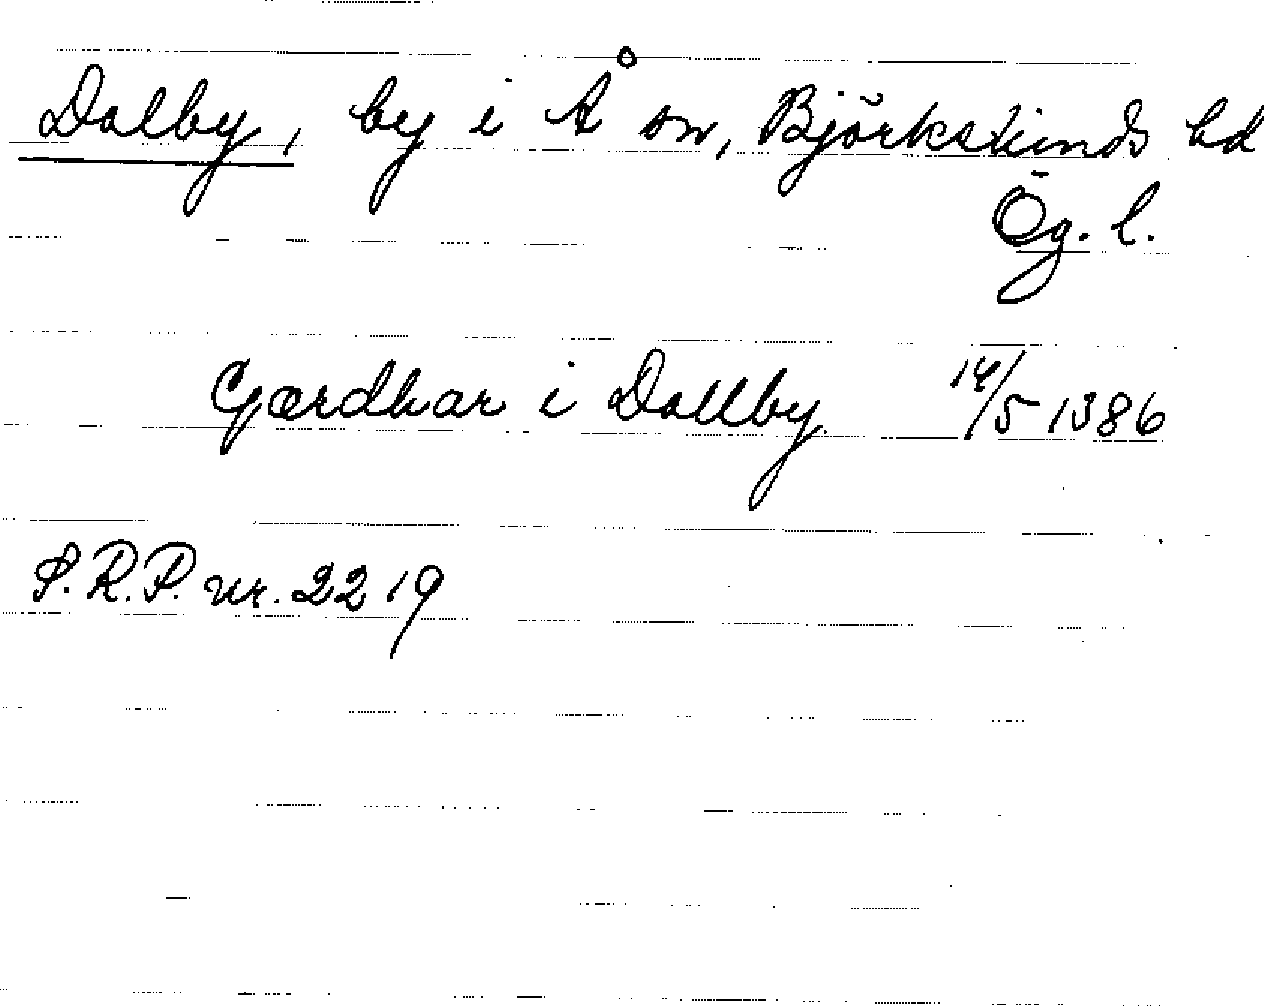 Dalby, by i Å sn, Björkekinds hd
Ög. l.
Gærdhar i Dallby 14/5 1386
S.R.P. nr. 2219